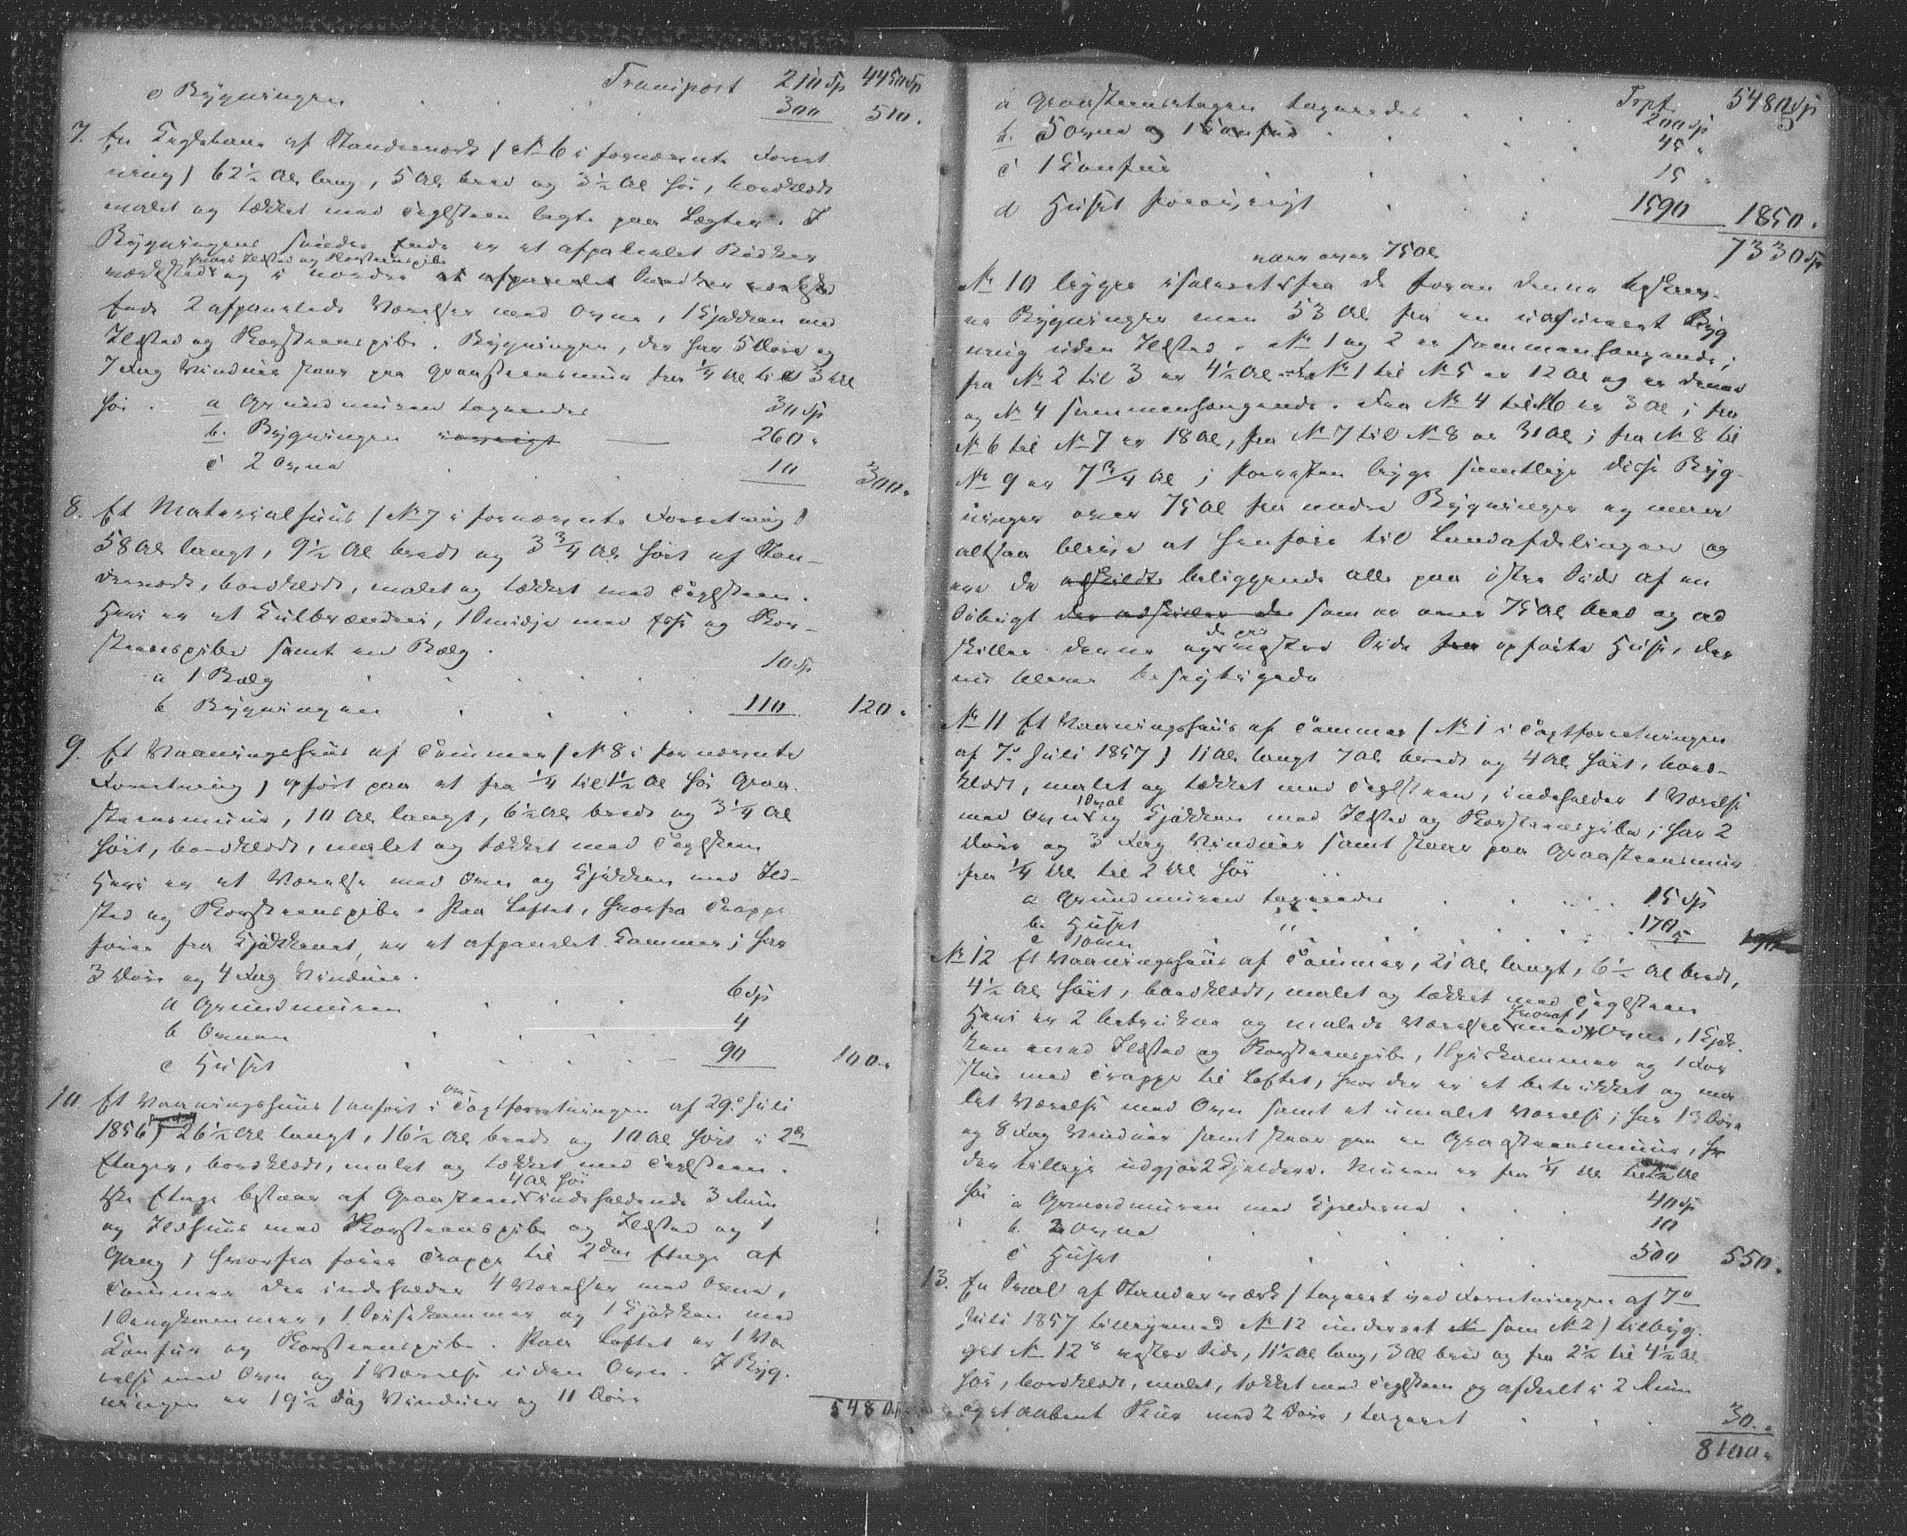 Transport 210 Sp 4450 Sp
c Bygningen . . . 300 510.
7. En Teglebane af Standerværk /: No 6 i fornævnte Forret
ning) 62½ Al lang, 5 Al bred og 3½ Al høi, bordklædt
malet og tækket med Teglsteen lagte paa Lægter. I
Bygningens søndre Ende er et afpanelet Bødker
hvori Ildsted og Skorsteenspibe
værksted og i nordre et afpanelet Snedker værksted
Ende 2 afpanelede Værelser med Ovne, 1 Kjøkken med
Ildsted og Skorsteenspibe. Bygningen, der har 5 Døre og
7 Fag Vinduer staar paa Graasteensmuur fra ¼ Al til 3 Al
høi. a Grundmuren taxeredes 30 Sp
b. Bygningen iøvrigt 260 "
c 2 Ovne . . 10 300.
8. Et Materialhuus /: No 7 i fornævnte Forretning)
58 Al langt, 9½ Al bredt og 3¾ Al høit af Stan-
derværk, bordklædt, malet og tækket med Teglsteen.
Heri er et Kulbrænderi, 1 Smidje med Esse og Skor-
steenspibe samt en Bælg.
a 1 Bælg . . . . . 10 Sp
b Bygningen . . . . 110 120.
9. Et Vaaningshuus af Tømmer /: No 8 i fornævnte
Forretning) opført paa et fra ¼ til 1½ Al høi Graa-
steensmuur, 10 Al langt, 6½ Al bredt og 3¼ Al
høit, bordklædt, malet og tækket med Teglsteen
Heri er et Værelse med Ovn og Kjøkken med Ild-
sted og Skorsteenspibe. Paa Loftet, hvorfra Trappe
fører fra Kjøkkenet, er et afpanelet Kammer; har
3 Døre og 4 Fag Vinduer.
a Grundmuren . . . 6 Sp
b Ovnen . . . . 4
c Huset . . . . 90 100.
10. Et Vaaningshuus /: anført i Taxtforretningen af 29de Juli
1856) 26½ Al langt, 16½ Al bredt og 10 Al høit i 2de
Etager, bordklædt, malet og tækket med Teglsteen.
4 Al høi
1ste Etage bestaar af Graasteen indeholdende 3 Rum
og Ildhuus med Skorsteenspibe og Ildsted og 1
Gang, hvorfra fører Trappe til 2den Etage af
Tømmer der indeholder 4 Værelser med Ovne,
1 Sengkammer, 1 Spisekammer og 1 Kjøkken med
Komfur og Skorsteenspibe. Paa Loftet er 1 Væ
relse med Ovn og 1 Værelse uden Ovn. I Byg-
ningen er 19½ Fag Vinduer og 11 Døre
5480 Sp
Trpt. 5480 Sp
a Graasteensetagen taxeredes . . 200 Sp
b. 5 Ovne og 1 Komfur . . . 45 "
c 1 Komfur . . . 15 "
d Huset forøvrigt . . . 1590 1850.
7330 Sp
over 75 Al
No 10 ligger isoleret fra de foran denne beskrev-
ne Bygninger men 53 Al fra en uassureret Byg
ning uden Ildsted. No 1 og 2 er sammenhængende;
fra No 2 til 3 er 4½ Al No 1 til No 5 er 12 Al og er denne
og No 4 sammenhængende. Fra No 4 til 6 er 3 Al; fra
No 6 til No 7 er 18 Al, fra No 7 til No 8 er 31 Al; fra No 8 til
No 9 er 7¾ Al; forresten ligge samtlige disse Byg-
ninger over 75 Al fra andre Bygninger og menes
altsaa blive at henføre til Landafdelingen og
ere de adskildte beliggende alle paa østre Side af en
der adskiller de som er over 75 Al bred og ad
skiller denne og de paa vestre Side fra opførte Huse, der
nu bleve besigtigede
No 11 Et Vaaningshuus af Tømmer /: No 1 i Taxtforretningen
af 7de Juli 1857) 11 Al langt 7 Al bredt og 4 Al høit, bord-
klædt, malet og tækket med Teglsteen, indeholder 1 Værelse
med Ovn og Kjøkken med Ildsted og Skorsteenspibe; har 2
Døre og 3 Fag Vinduer samt staar paa Graasteensmuur
fra ¼ Al til 2 Al høi
a Grundmuren taxeredes . . . 15 Sp
b. Huset " . . . 170
c 1 Ovn . . . 5
No 12 Et Vaaningshuus af Tømmer, 21 Al langt, 6½ Al bredt,
4½ Al høit, bordklædt, malet og tækket med Teglsteen
hvoraf 1
Heri er 2 betrukne og malede Værelser med Ovne, 1 Kjøk-
ken med Ildsted og Skorsteenspibe, 1 Spiskammer og 1 For
stue med Trappe til Loftet, hvor der er et betrukket og ma
let Værelse med Ovn samt et umalet Værelse; har 13 Døre
og 8 Fag Vinduer samt staar paa en Graasteensmuur,
der tillige udgjør 2 Kjeldere. Muren er fra ¼ Al til 1½ Al
høi a Grundmuren med Kjelderne . . 40 Sp
b. 2 Ovne . . . 10
c Huset . . . 500 550.
13. En Sval af Standerværk /: taxeret ved Forretningen af 7de
Juli 1857 tilligemed No 12 underet som No 2) tilbyg-
get No 12s vestre Side, 11½ Al lang, 3 Al bred og fra 2½ til 4½ Al
høi, bordklædt, malet, tækket med Teglsteen og afdeelt i 2 Rum
og et aabent Skuur med 2 Døre, taxeret . . . 30.
8100.